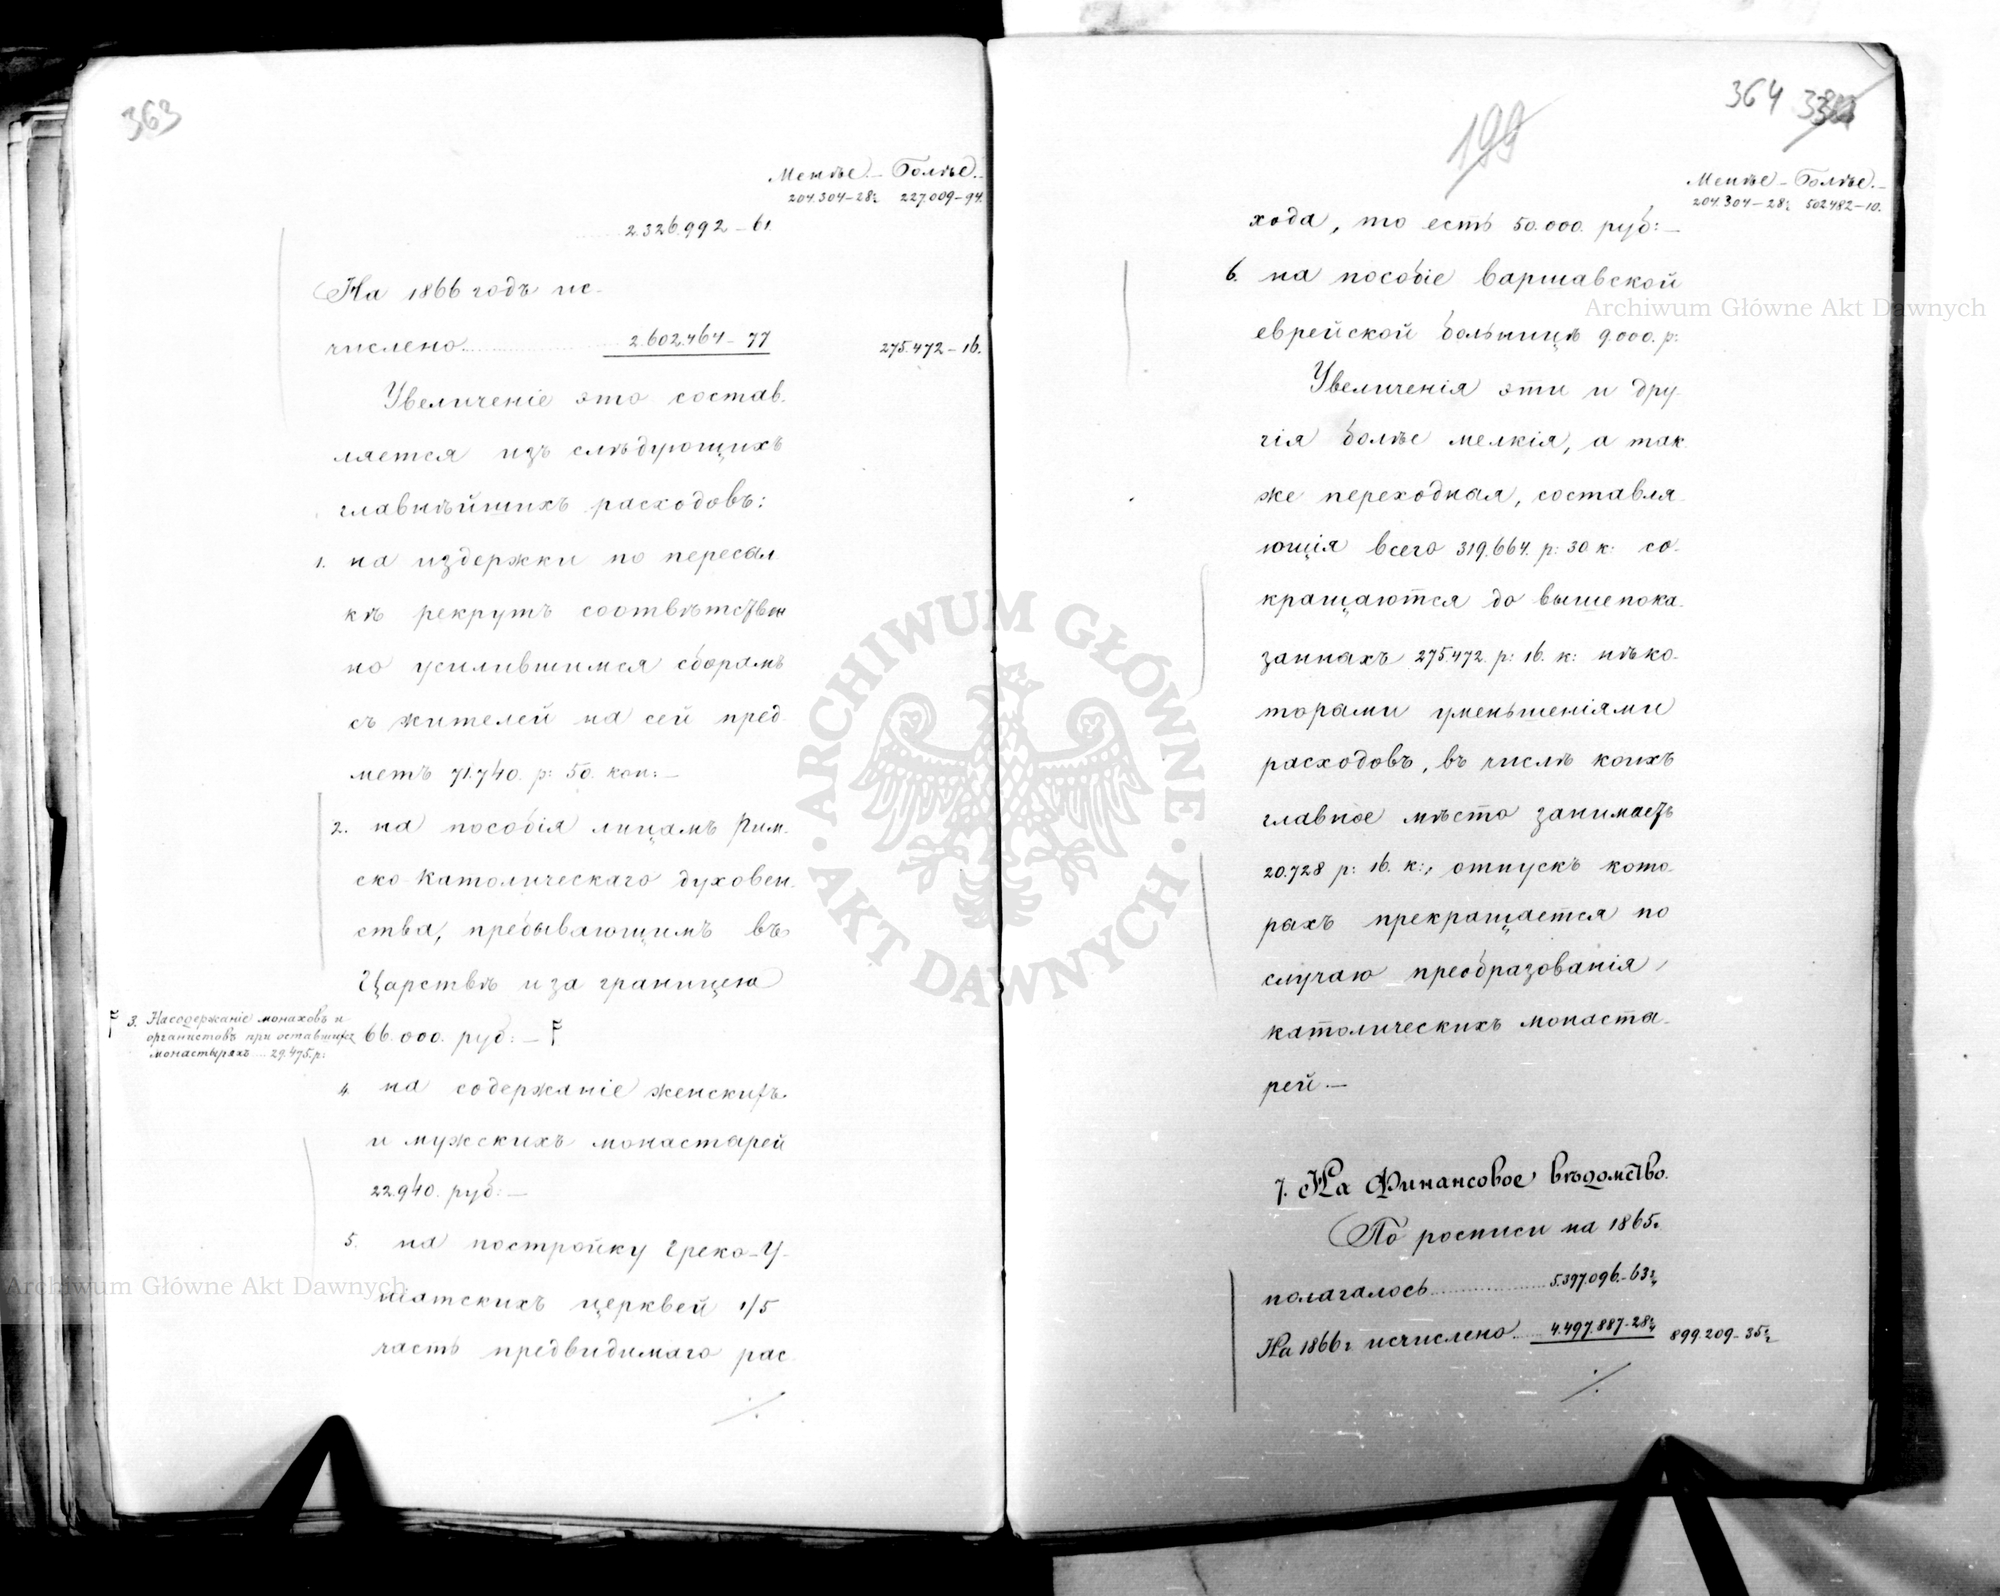 363
Менѣе. – Болѣе. –
204.304–28½ 227.009–94.
2.326.992–61.
На 1866 годъ ис-
числено 2.602.464–77 275.472–16.
Увеличеніе это состав-
ляется изъ слѣдующихъ
главнѣйшихъ расходовъ:
1. на издержки по пересыл
кѣ рекрутъ соотвѣтствен
но усилившимся сборамъ
съ жителей на сей пред-
метъ 71.740. р: 50. коп: –
2. на пособія лицамъ Рим-
ско-Католическаго духовен-
ства, пребывающимъ въ
Царствѣ и за границею
66.000. руб: –
3. На содержаніе монаховъ и
органистовъ при оставшихся
монастыряхъ .... 29.475. р:
4. на содержаніе женскихъ
и мужскихъ монастырей
22.940. руб: –
5. на постройку Греко-У-
ніатскихъ церквей 1/5
часть предвидимаго рас-
364
199
Менѣе – Болѣе. –
204.304–28½ 502482–10.
хода, то есть 50.000. руб: –
6. на пособіе Варшавской
еврейской больницѣ 9.000. р:
Увеличенія эти и дру-
гія болѣе мелкія, а так
же переходная, составля-
ющія всего 319.664. р: 30 к: со-
кращаются до вышепока-
занныхъ 275.472. р: 16. к: нѣко-
торыми уменьшеніями
расходовъ, въ числѣ коихъ
главное мѣсто занимаетъ
20.728 р: 16. к:, отпускъ кото-
рыхъ прекращается по
случаю преобразованія
католическихъ монасты-
рей. –
7. На Финансовое вѣдомство.
По росписи на 1865 г.
полагалось 5.397.096.–63½
На 1866 г исчислено 4.497.887–28½ 899.209–35½
Archiwum Główne Akt Dawnych
Archiwum Główne Akt Dawnych
ARCHIWUM GŁÓWNE · AKT DAWNYCH ·